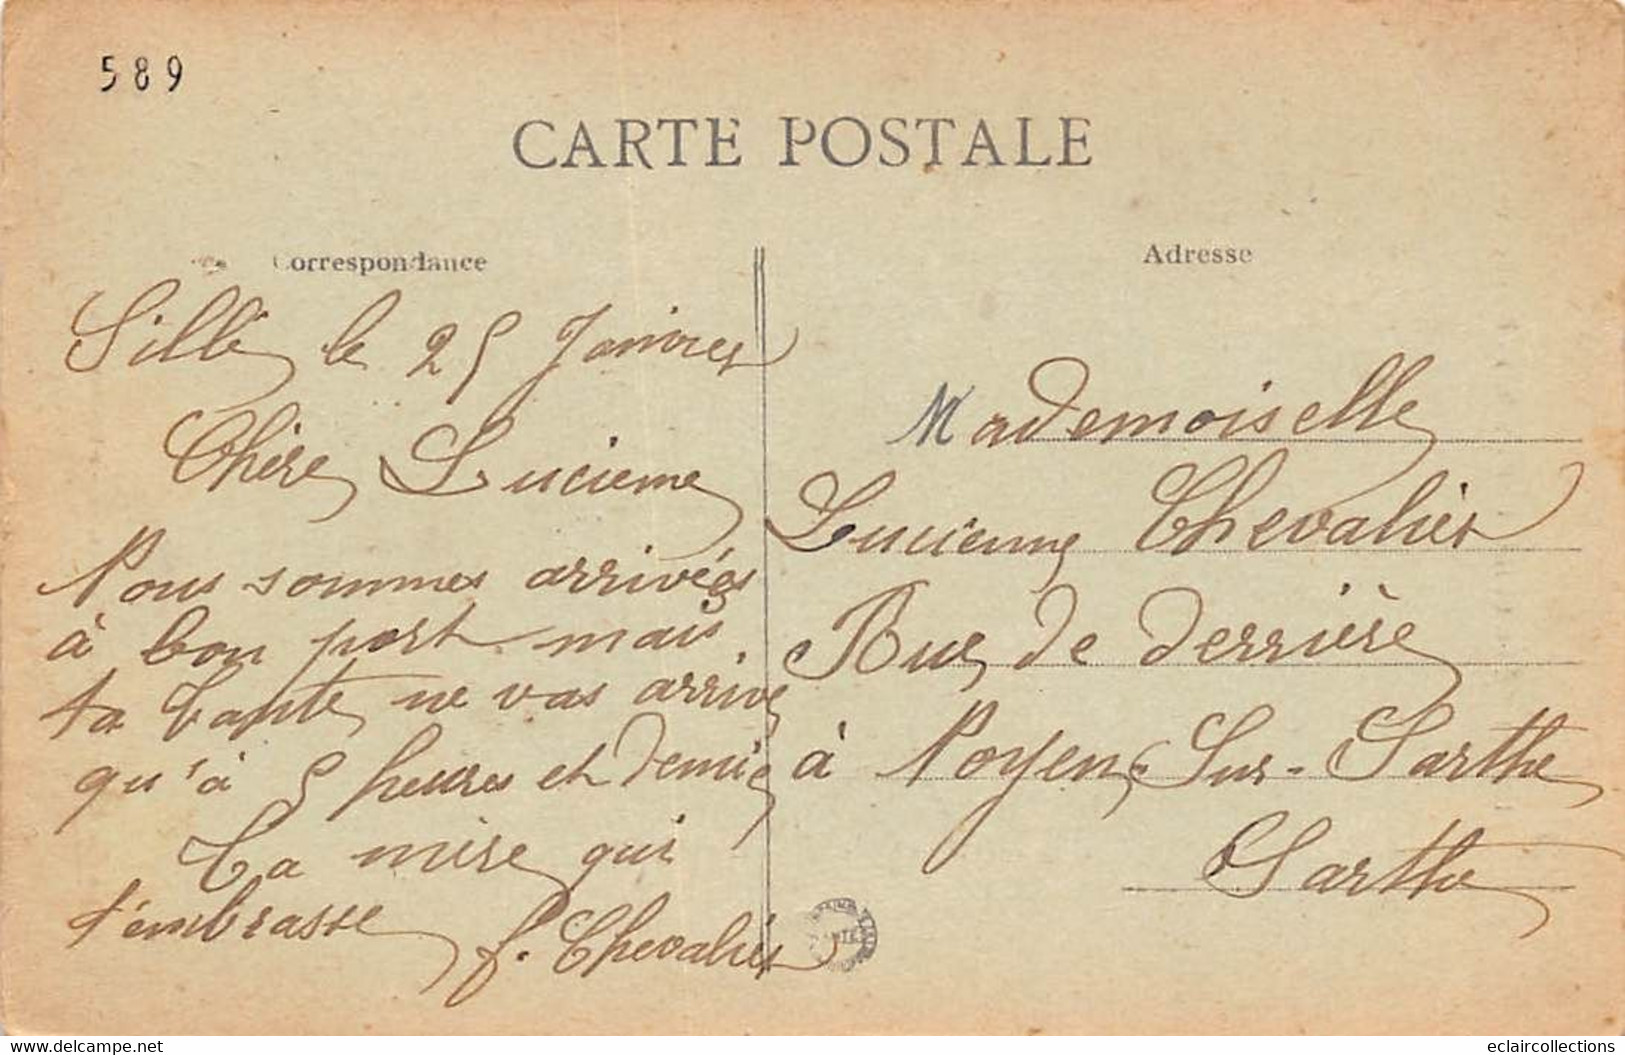 589
CARTE POSTALE
Correspondance
Sillé le 25 Janvier
Chère Lucienne
Nous sommes arrivées
à bon port mais
ta tante ne vas arrivé
qu'à 5 heures et demie
Ta mère qui
t'embrasse f. Chevalier
Adresse
Mademoiselle
Lucienne Chevalier
Rue de derrière
à Noyen Sur-Sarthe
Sarthe
Imagedelcampe.com
eclaircollections